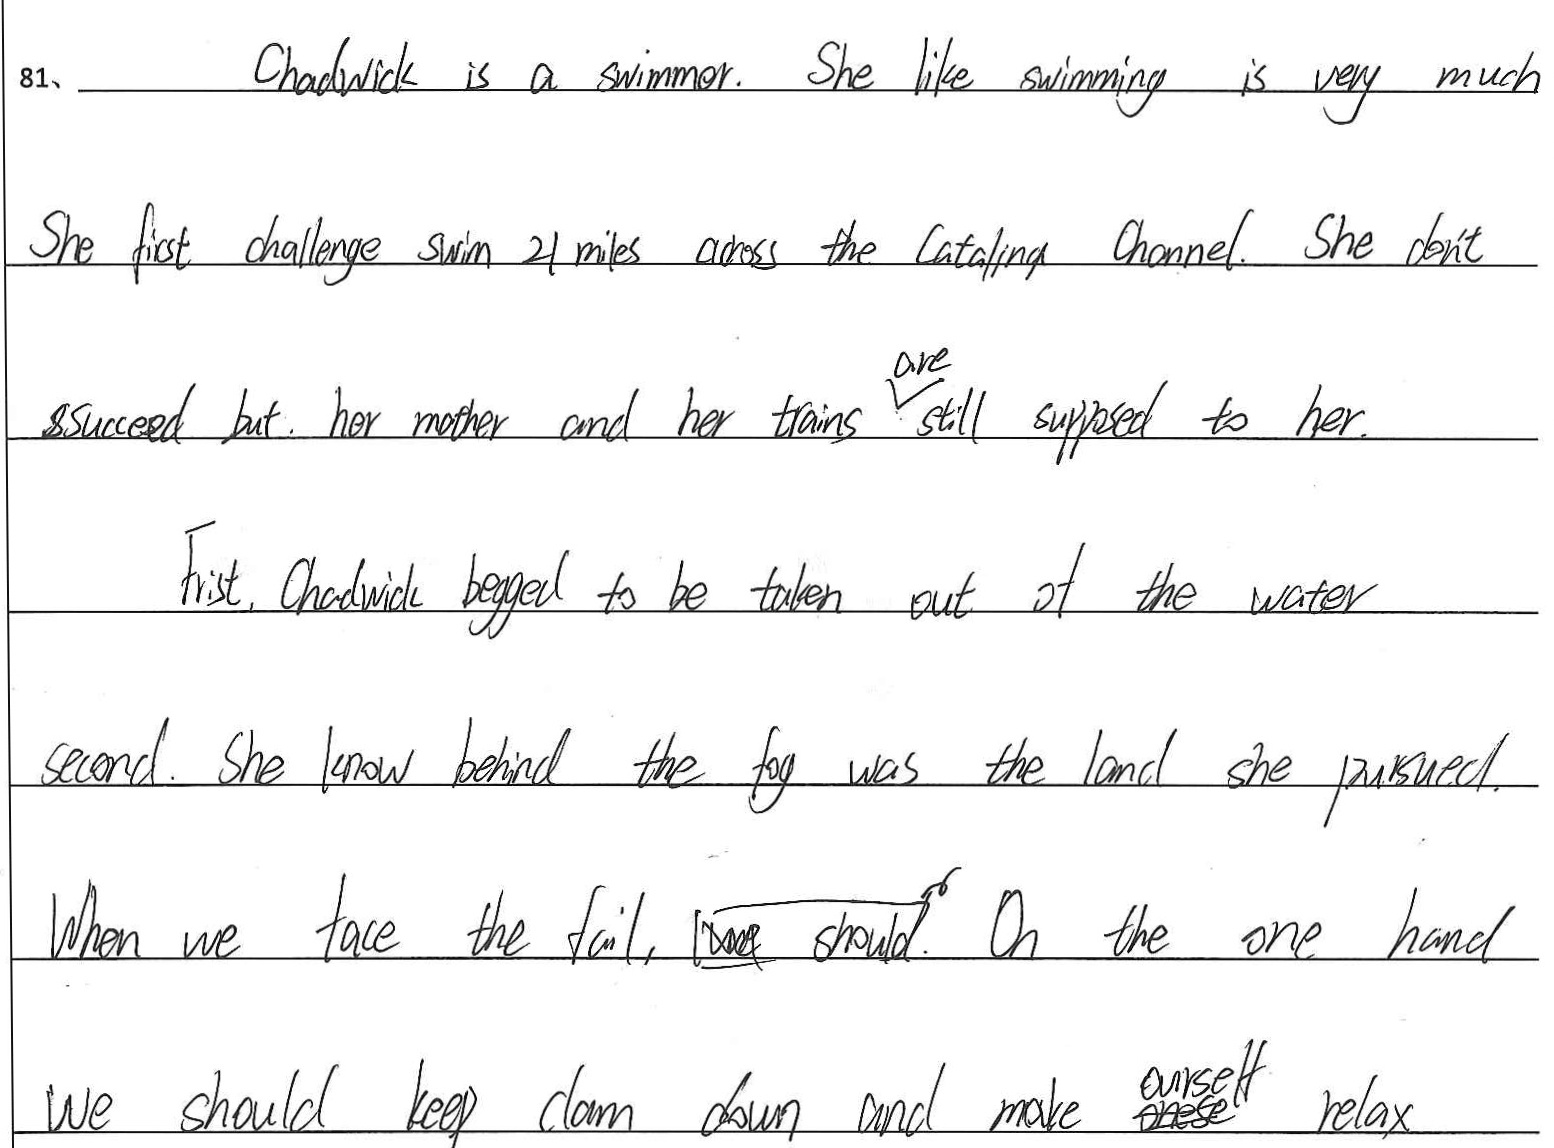 81、 Chadwick is a swimmer. She like swimming is very much
She first challenge swim 21 miles across the Catalina Channel. She don't
succeed but her mother and her trains are still supposed to her.
Frist, Chadwick begged to be taken out of the water
second. She know behind the fog was the land she pursued.
When we face the fail, should. On the one hand
we should keep clam down and make ourself relax